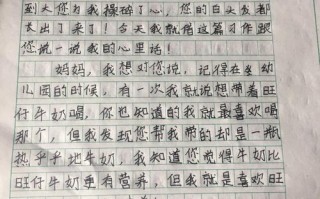 到大您为我操碎了心，您的白头发都
长出了来了！当天我就借这篇习作跟
您说一说我的心里话！
妈妈，我想对您说，记得在幼
儿园的时候，有一次我就说想带着旺
仔牛奶喝，你也知道的我就最喜欢喝
那个，但我发现您帮我带的却是一瓶
热乎乎地牛奶，我知道您觉得牛奶比
旺仔牛奶更有营养，但我就是喜欢旺